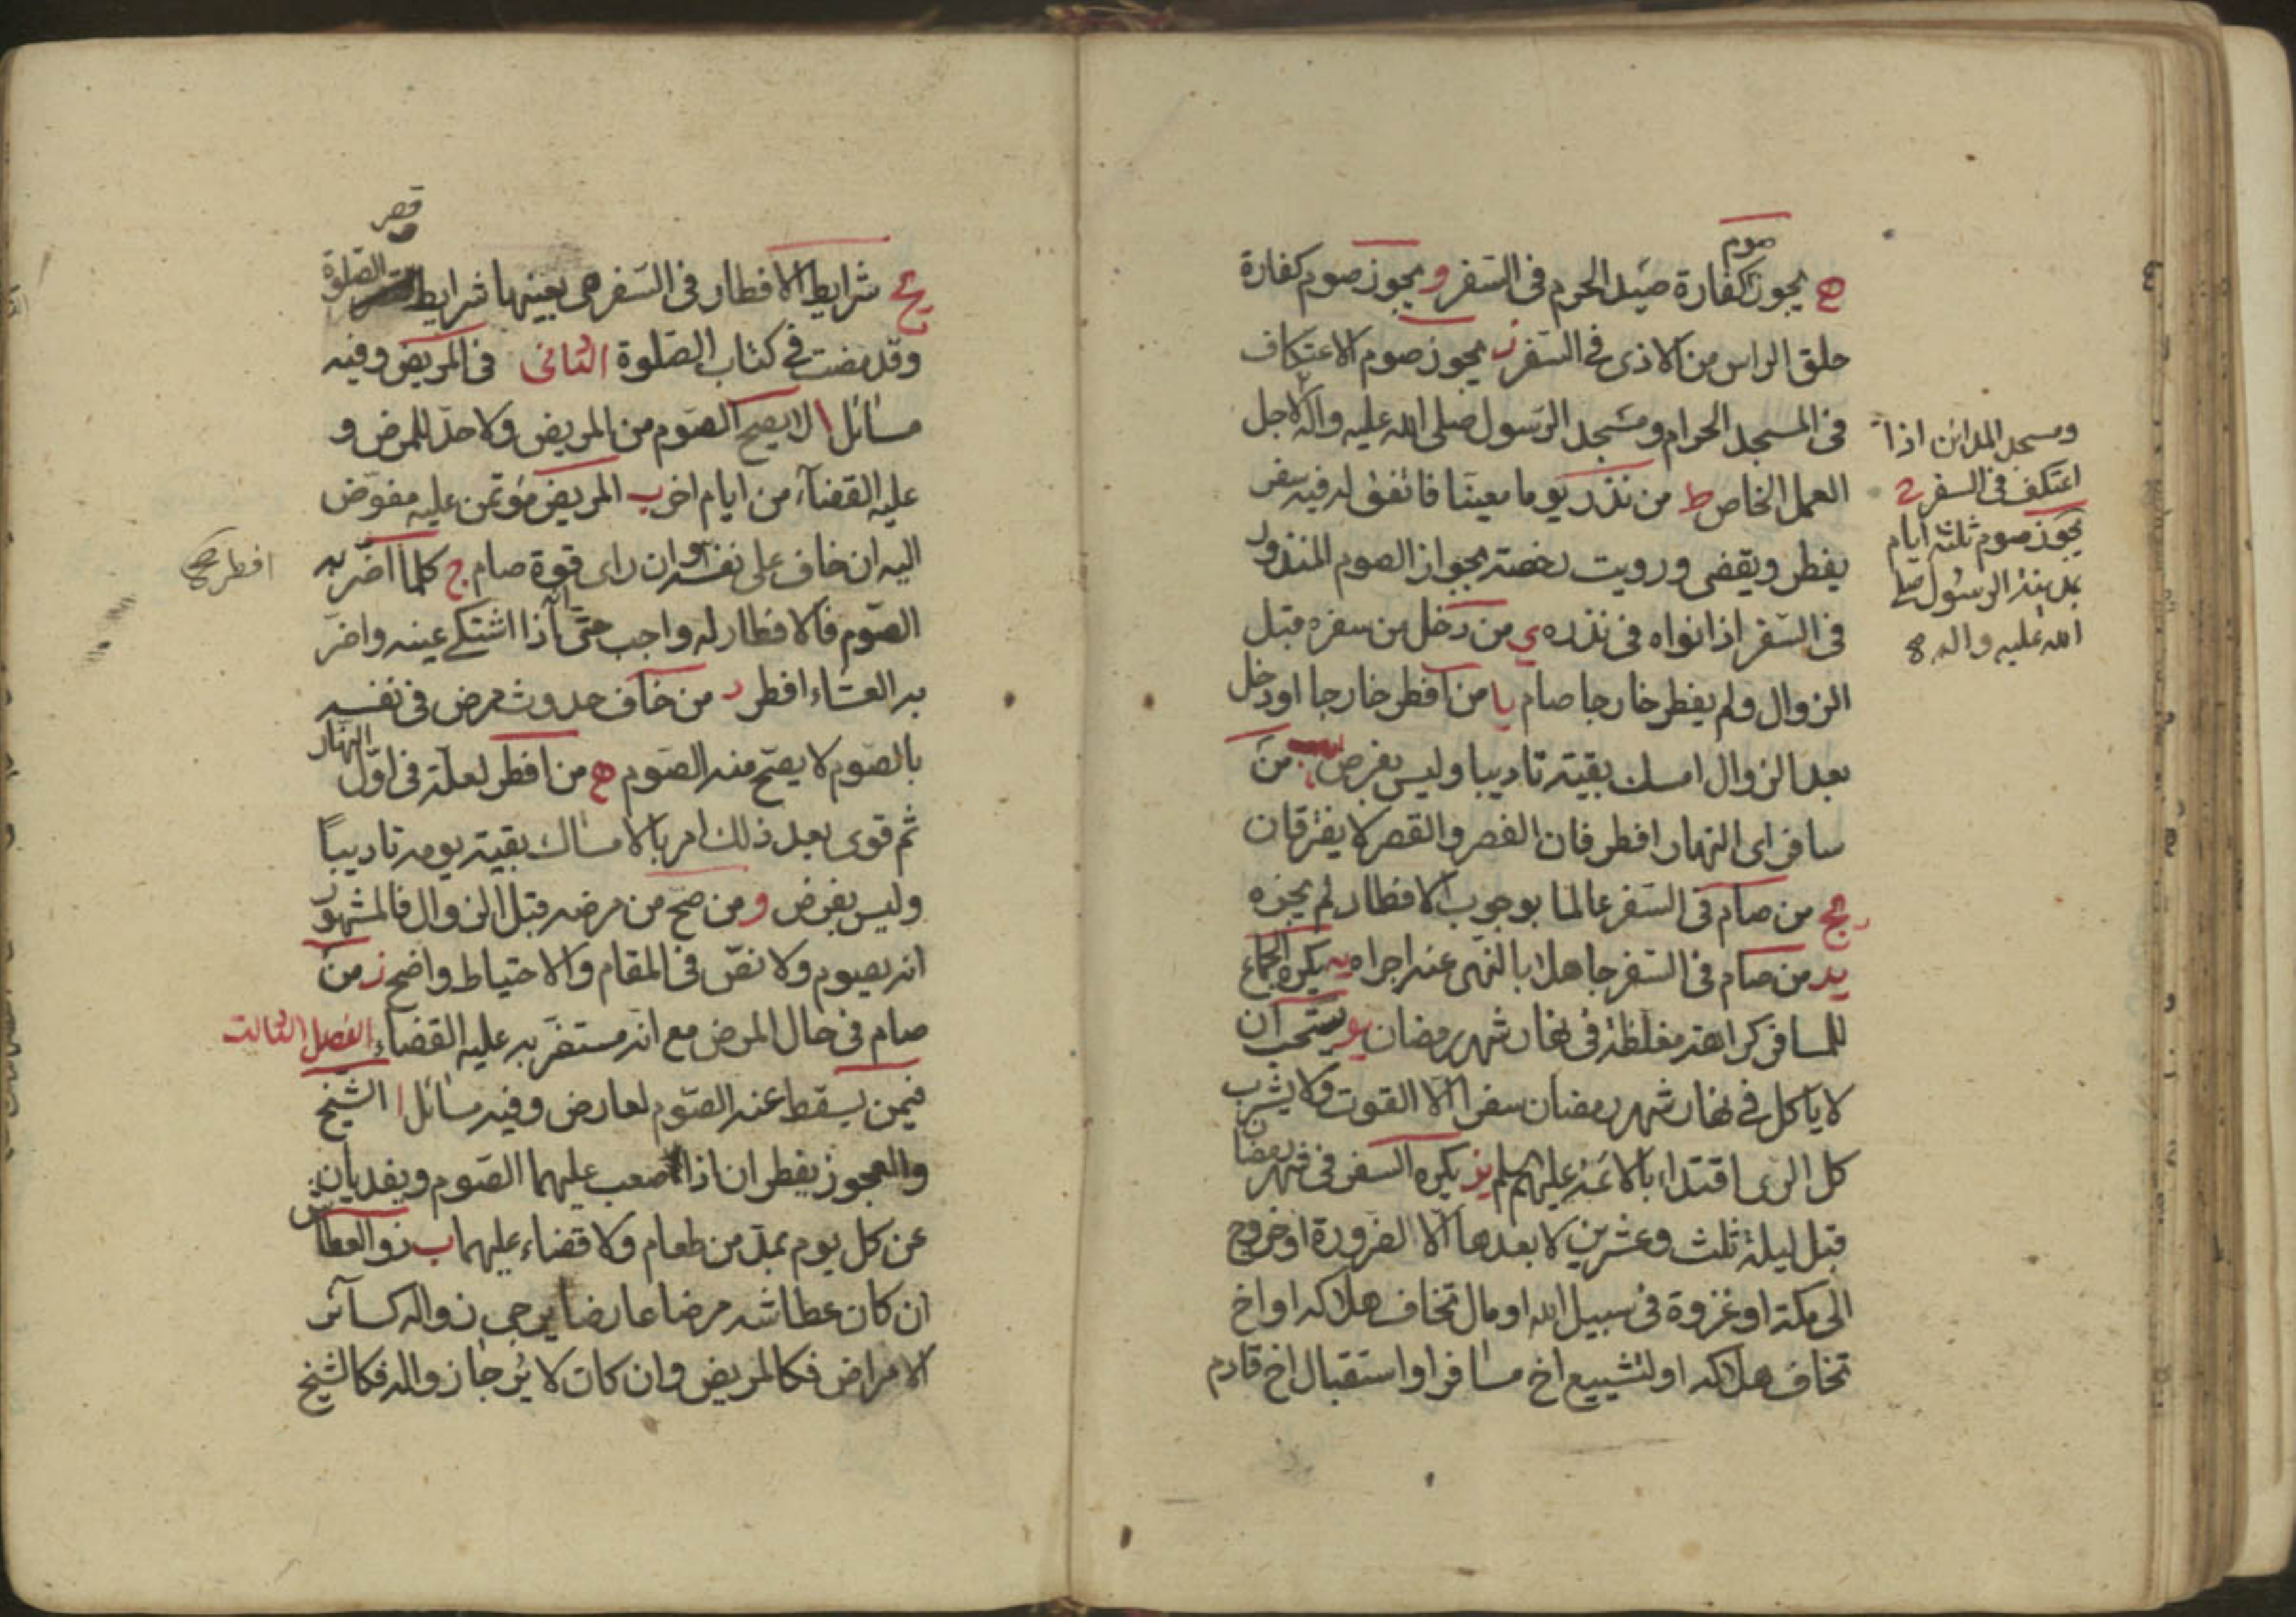 صوم
ه يجوز كفارة صيد الحرم فى السفر و يجوز صوم كفارة
حلق الراس من الاذى فى السفر ز يجوز صوم الاعتكاف
فى المسجد الحرام ومسجد الرسول صلى الله عليه واله لاجل
العمل الخاص ط من نذر يوما معينا فاتفق له فيه سفر
يفطر ويقضى ورويت رخصة بجواز الصوم المنذور
فى السفر اذا نواه فى نذره ى من دخل من سفره قبل
الزوال ولم يفطر خارجا صام يا من افطر خارجا او دخل
بعد الزوال امسك بقيته تاديبا وليس بفرض من
سافر اى النهار افطر فان الفصر والقصر لا يفترقان
يج من صام فى السفر عالما بوجوب الافطار لم يجزه
يد من صام فى السفر جاهلا بالنهى عنه اجزاه يه يكره الجماع
للمسافر كراهة مغلظة فى نهار شهر رمضان يو يستحب ان
لا ياكل فى نهار شهر رمضان سفرا الا القوت ولا يشرب
كل الرى اقتداء بالائمة عليهم سلم يز يكره السفر فى شهر رمضان
قبل ليلة ثلث وعشرين لا بعدها الا الضرورة او خروج
الى مكة او غزوة فى سبيل الله او مال تخاف هلاكه او اخ
تخاف هلاكه او لتشييع اخ مسافر او استقبال اخ قادم
ومسجد المدائن اذا
اعتكف فى السفر ح
يجوز صوم ثلثة ايام
بمدينة الرسول صلى
الله عليه واله
قصر
يح شرايط الافطار فى السفر هى بعينها شرايط الصلوة
وقد مضت فى كتاب الصلوة الثانى فى المريض وفيه
مسائل ا لا يصح الصوم من المريض ولا حد للمرض و
عليه القضاء من ايام اخر ب المريض مؤتمن عليه مفوض
اليه ان خاف على نفسه وان راى قوة صام ج كلما اضر به
الصوم فالافطار له واجب حتى انه اذا اشتكى عينه واضر
به العشاء افطر د من خاف حدوث مرض فى نفسه
بالصوم لا يصح منه الصوم ه من افطر لعلة فى اول النهار
ثم قوى بعد ذلك امر بالامساك بقية يومه تاديبا
وليس بفرض و من صح من مرضه قبل الزوال فالمشهور
انه يصوم ولا نص فى المقام والاحتياط واضح ز من
صام فى حال المرض مع انه مستضر به عليه القضاء الفصل الثالث
فيمن يسقط عنه الصوم لعارض وفيه مسائل ا الشيخ
والعجوز يفطران اذا صعب عليهما الصوم ويفديان
عن كل يوم بمد من طعام ولا قضاء عليهما ب ذو العطاش
ان كان عطاشه مرضا عارضا يرجى زواله كسائر
الامراض فكالمريض وان كان لا يرجا زواله فكالشيخ
افطر صح